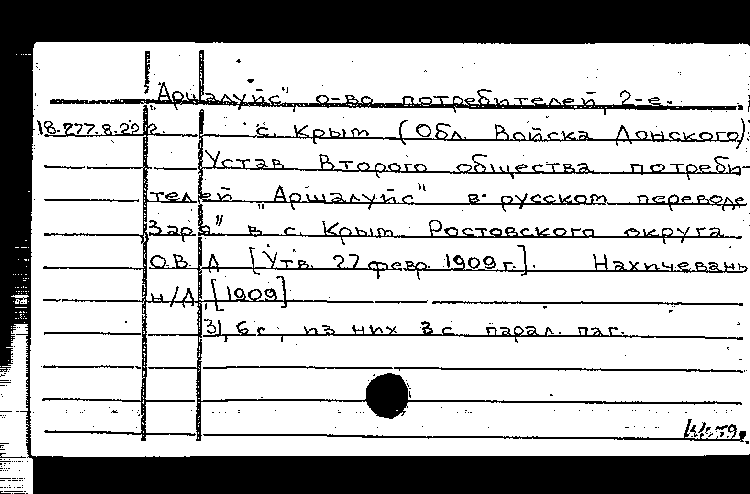 "Аршалуйс", о-во потребителей, 2-е.
18.277.8.292. с. Крым (Обл. Войска Донского).
Устав Второго общества потреби-
телей „Аршалуйс" в русском переводе
Заря" в с. Крым Ростовского округа
О.В.Д [Утв. 27 февр. 1909 г.]. Нахичевань
н/Д, [1909]
31, 6 с., из них 3 с парал. паг.